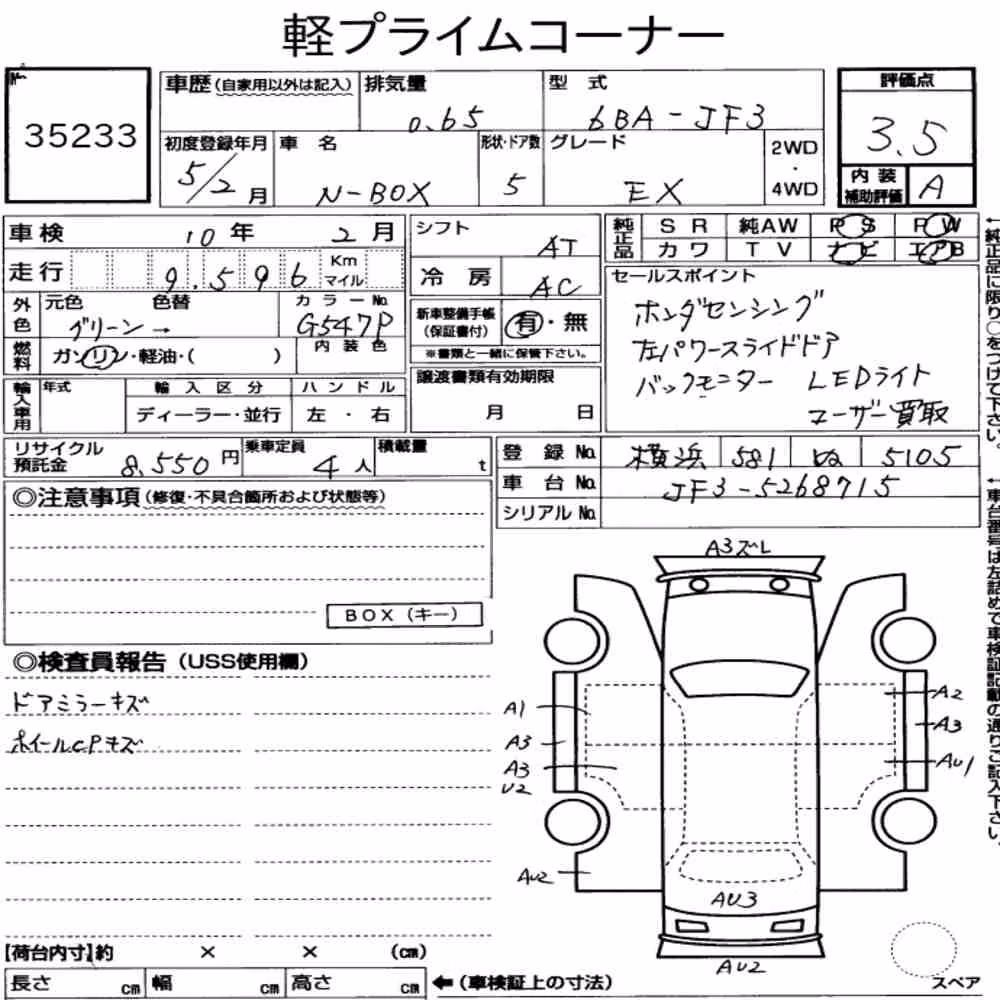 軽プライムコーナー
No.
35233
車歴(自家用以外は記入) 排気量 0.65 型式 6BA-JF3
初度登録年月 5/2月 車名 N-BOX 形状・ドア数 5 グレード EX 2WD・4WD
評価点 3.5
内装補助評価 A
車検 10年 2月
走行 9.596 Km マイル
外色 元色 グリーン→ 色替 カラーNo. G547P
燃料 ガソリン・軽油・( ) 内装色
輸入車用 年式 輸入区分 ディーラー・並行 ハンドル 左・右
シフト AT
冷房 AC
新車整備手帳(保証書付) 有・無
※書類と一緒に保管下さい。
譲渡書類有効期限 月 日
純正品 SR 純AW PS PW
カワ TV ナビ エアB
セールスポイント
ホンダセンシング
左パワースライドドア
バックモニター LEDライト
ユーザー買取
リサイクル預託金 8,550円 乗車定員 4人 積載量 t
登録No. 横浜 581 5105
車台No. JF3-5268715
シリアルNo.
◎注意事項(修復・不具合箇所および状態等)
BOX(キー)
◎検査員報告(USS使用欄)
ドアミラーキズ
ホイールCPキズ
A3ズレ
A1
A3
A3
U2
AU2
A2
A3
AU1
AU3
AU2
スペア
【荷台内寸】約 × × (cm)
長さ cm 幅 cm 高さ cm ←(車検証上の寸法)
←純正品に限り○をつけて下さい。
←車台番号は左詰めで車検証記載の通りご記入下さい。